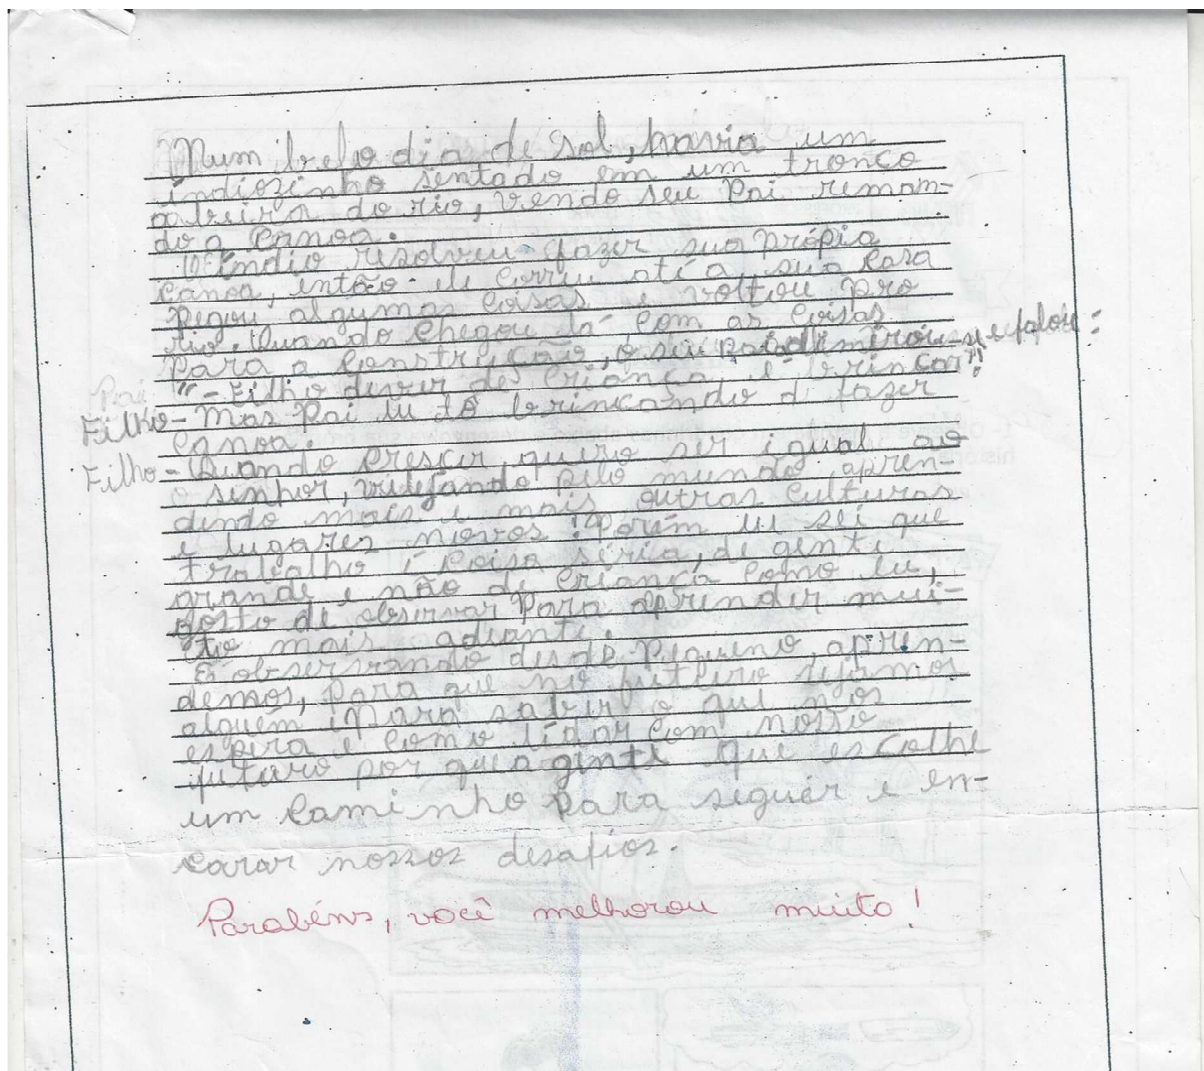 Num belo dia de sol, havia um
indiozinho sentado em um tronco
a beira do rio, vendo seu Pai reman-
do a canoa.
O índio resolveu fazer sua própia
canoa, então ele correu até a sua casa
pegou algumas coisas e voltou pro
rio. Quando chegou lá com as coisas
para a construção, o seu pai admirou-se e falou:
Pai "- Filho deixe de criança e brincar"!
Filho - Mas Pai eu tô brincando d fazer
canoa.
Filho - Quando crescer, quero ser igual ao
o senhor, velejando pelo mundo, apren-
dendo mais e mais outras culturas
e lugares novos! Porém eu sei que
trabalho é coisa séria, de gente
grande e não de criança como eu,
gosto de observar para aprender mui-
to mais adiante.
É observando desde pequeno, apren-
demos, para que no futuro sejamos
alguem e para saber o que nos
espera e como lidar com nosso
futuro por que a gente que escolhe
um caminho para seguir e en-
carar nossos desafios.
Parabéns, você melhorou muito!